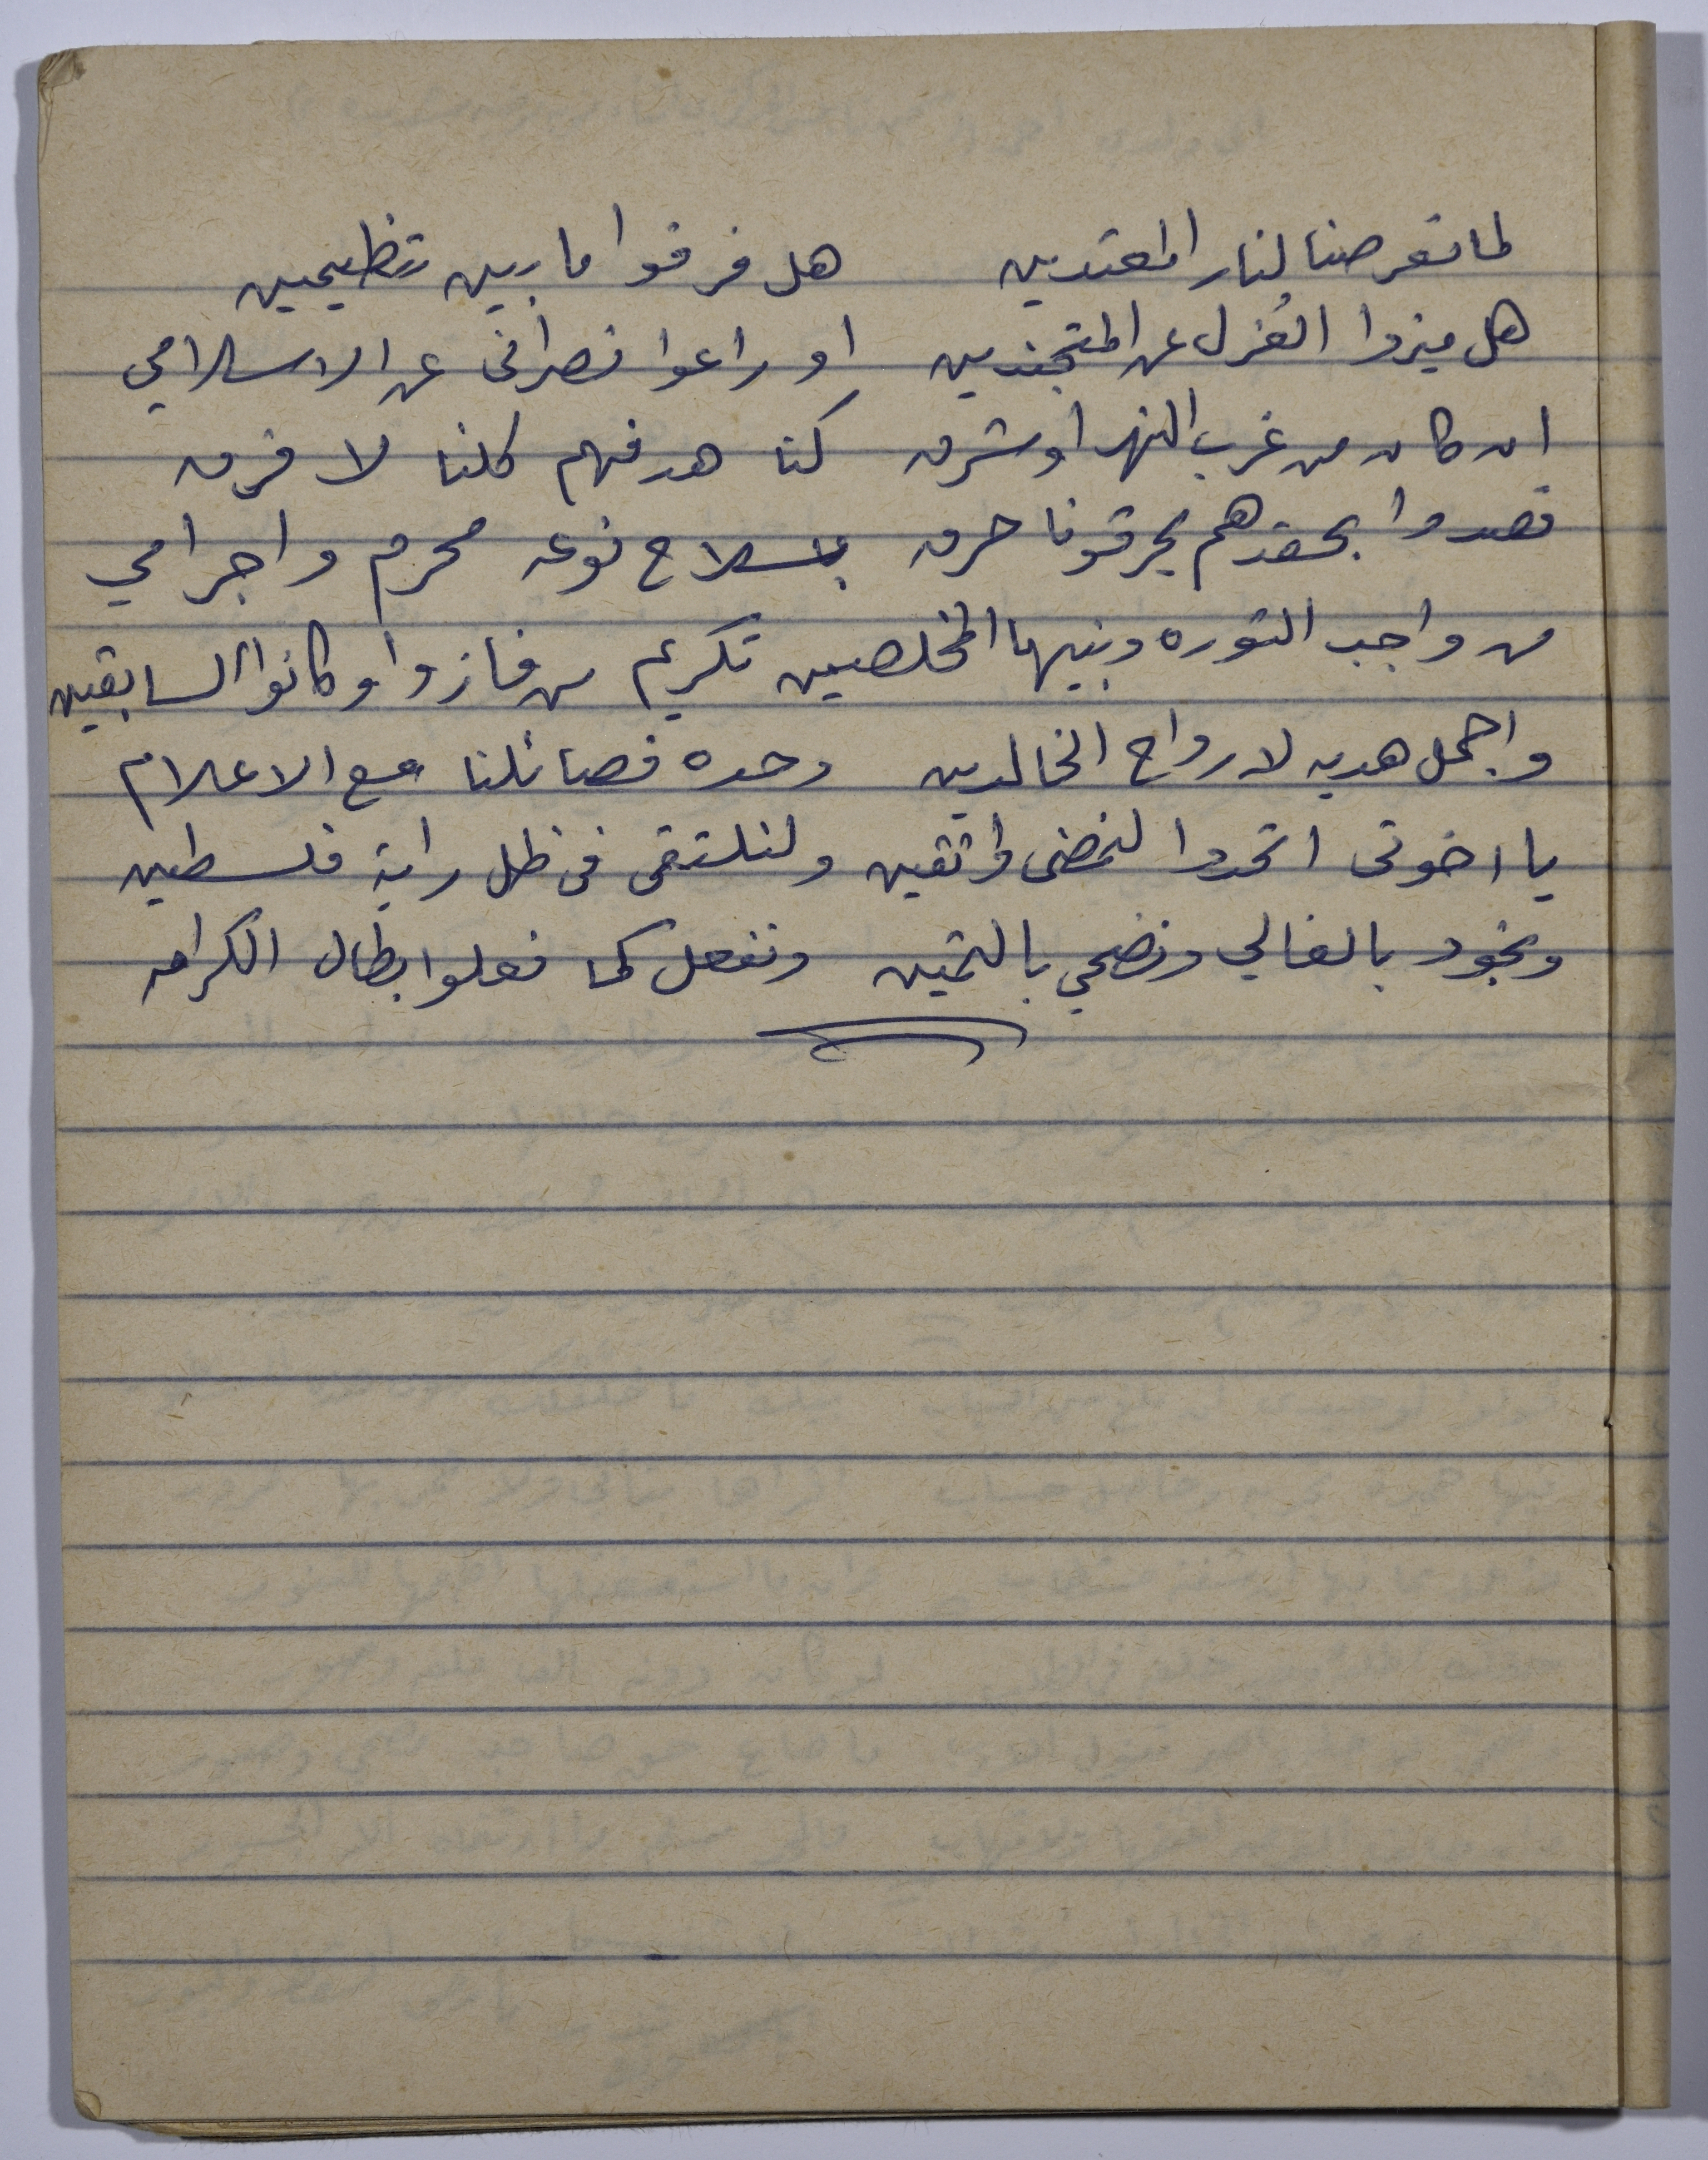 لما تعرضنا لنار المعتدين هل فرقوا ما بين تنظيمين
هل ميزوا العُزل عن المتجندين او راعوا نصرانى عن الاسلامي
ان كان من غرب النهر او شرق كنا هدفهم كلنا لا فرق
قصدوا بحقدهم يحرقونا حرق بسلاح نوعه محرم واجرامي
من واجب الثوره وبنيها المخلصين تكريم من فازوا وكانوا السابقين
واجمل هديه لارواح الخالدين وحده فصائلنا مع الاعلام
يا اخوتى اتحدوا لنمضى واثقين ولنلتقى فى ظل راية فلسطين
ونجود بالغالي ونضحي بالثمين ونفعل كما فعلوا ابطال الكرامه